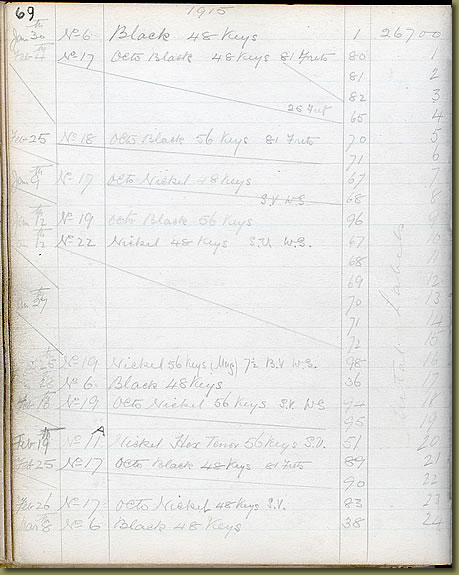 69
1915
Jan 30 No 6 Black 48 Keys 1 26700
Feb 4 No 17 Octo Black 48 Keys 81 Frets 80 1
81 2
82 3
26 Fret 65 4
Feb 25 No 18 Octo Black 56 Keys 81 Frets 70 5
71 6
Jan 9th No 17 Octo Nickel 48 Keys 67 7
S.V. W.S. 68 8
Jan 12th No 19 Octo Black 56 Keys 96 9
Jan 12th No 22 Nickel 48 Keys S.V. W.S. 67 10
68 11
69 12
Jan 27th 70 13
71 14
72 15
No 19 Nickel 56 Keys 7½ B.V W.S. 98 16
No 6 Black 48 Keys 36 17
Feb 18 No 19 Octo Nickel 56 Keys S.V. W.S. 94 18
95 19
Feb 19th No 11A Nickel Hex Tenor 56 Keys S.V. 51 20
Feb 25 No 17 Octo Black 48 Keys 81 Frets 89 21
90 22
Feb 26 No 17 Octo Nickel 48 Keys S.V. 83 23
Mar 8 No 6 Black 48 Keys 38 24
Labels